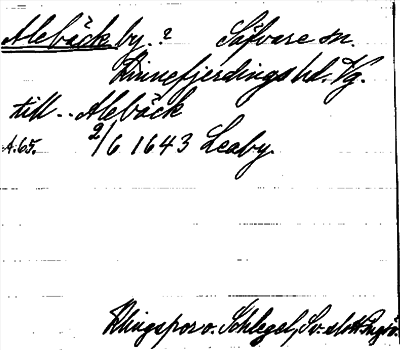 Alebäck by. ? Säfvare sn.
Kinnefjerdings hd. Vg.
till .. Alebäck
A.65. 2/6 1643 Leaby.
Klingspor o. Schlegel, Sv. slott